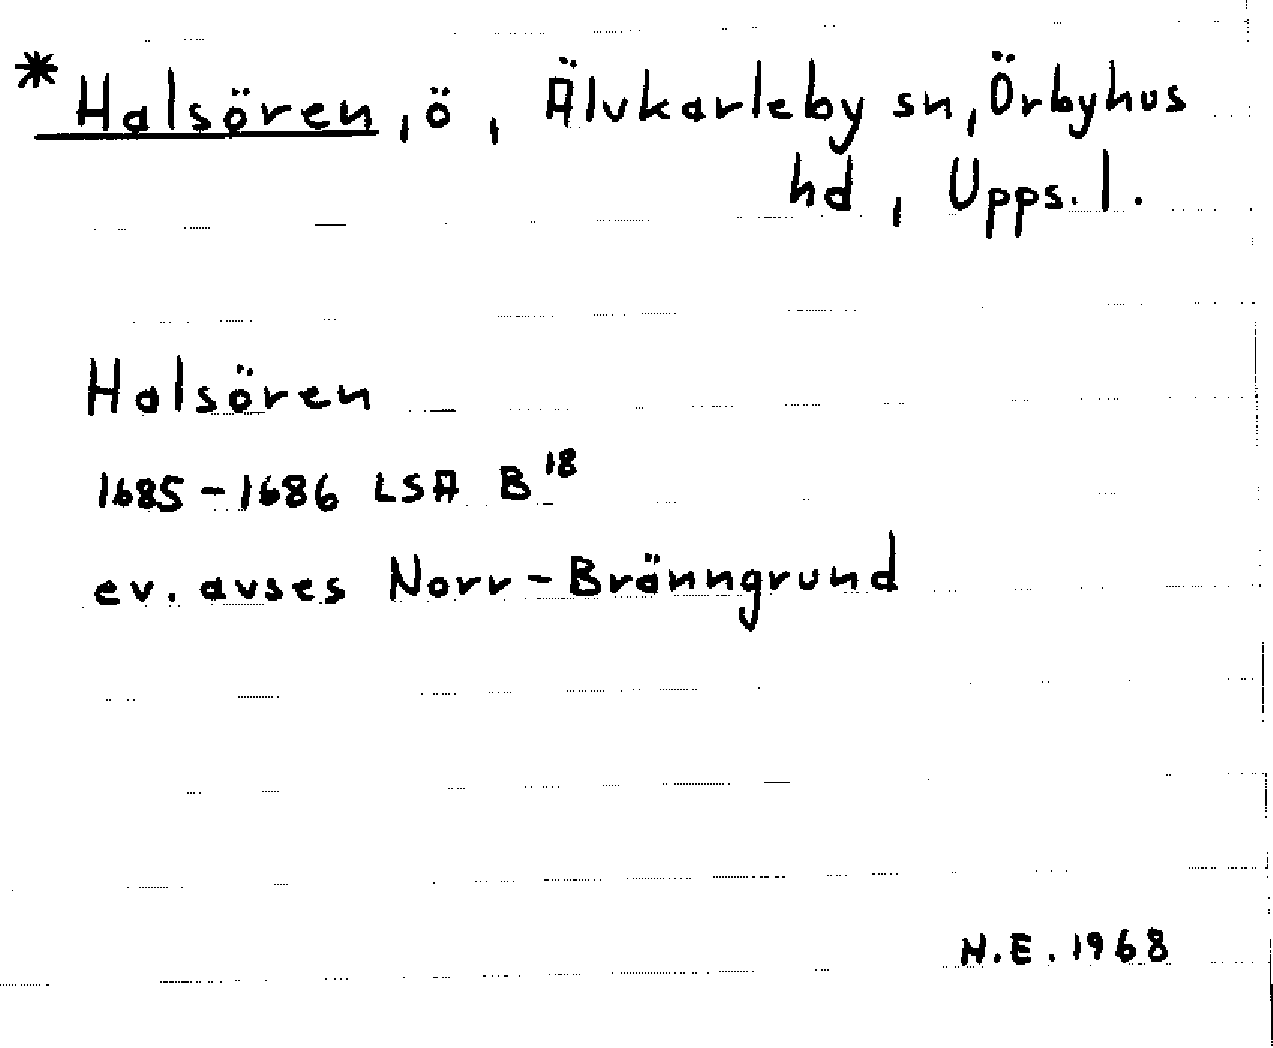 *Halsören, ö, Älvkarleby sn, Örbyhus
hd, Upps. l.
Halsören
1685-1686 LSA B¹⁸
ev. avses Norr-Bränngrund
N.E. 1968